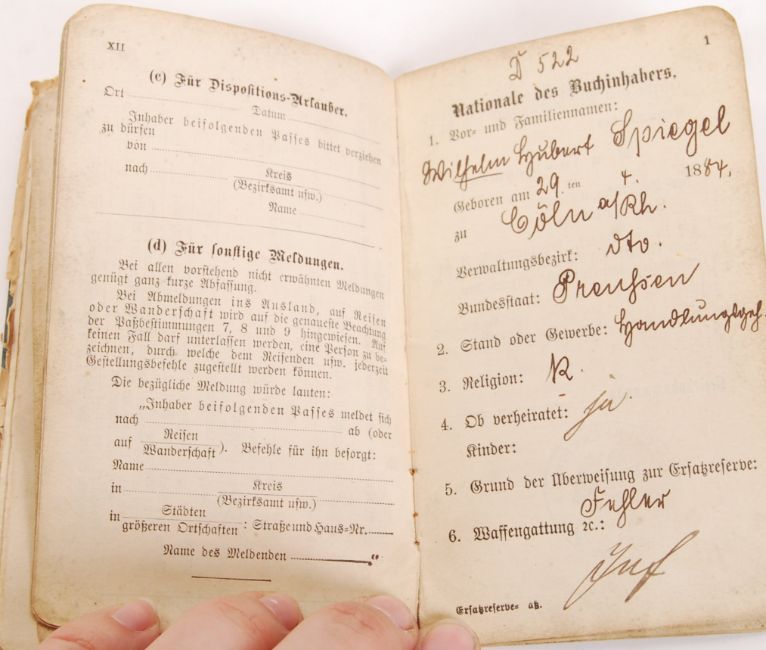 XII
(c) Für Dispositions-Urlauber.
Ort
Datum
Inhaber beifolgenden Passes bittet verziehen
zu dürfen
von
nach Kreis
(Bezirksamt usw.)
Name
(d) Für sonstige Meldungen.
Bei allen vorstehend nicht erwähnten Meldungen
genügt ganz kurze Abfassung.
Bei Abmeldungen ins Ausland, auf Reisen
oder Wanderschaft wird auf die genaueste Beachtung
der Paßbestimmungen 7, 8 und 9 hingewiesen. Auf
keinen Fall darf unterlassen werden, eine Person zu be-
zeichnen, durch welche dem Reisenden usw. jederzeit
Gestellungsbefehle zugestellt werden können.
Die bezügliche Meldung würde lauten:
„Inhaber beifolgenden Passes meldet sich
nach ab (oder
auf Reisen
Wanderschaft). Befehle für ihn besorgt:
Name
in Kreis
(Bezirksamt usw.)
in Städten
größeren Ortschaften: Straße und Haus-Nr.
Name des Meldenden “
1
D 522
Nationale des Buchinhabers.
1. Vor- und Familiennamen:
Wilhelm Hubert Spiegel
Geboren am 29. ten 4. 1884.
zu Cöln a/Rh.
Verwaltungsbezirk: dto.
Bundesstaat: Preussen
2. Stand oder Gewerbe: Handlungsgeh.
3. Religion: K.
4. Ob verheiratet: ja
Kinder:
5. Grund der Überweisung zur Ersatzreserve:
Fehler
6. Waffengattung ꝛc.:
Inf
Ersatzreserve- aß.